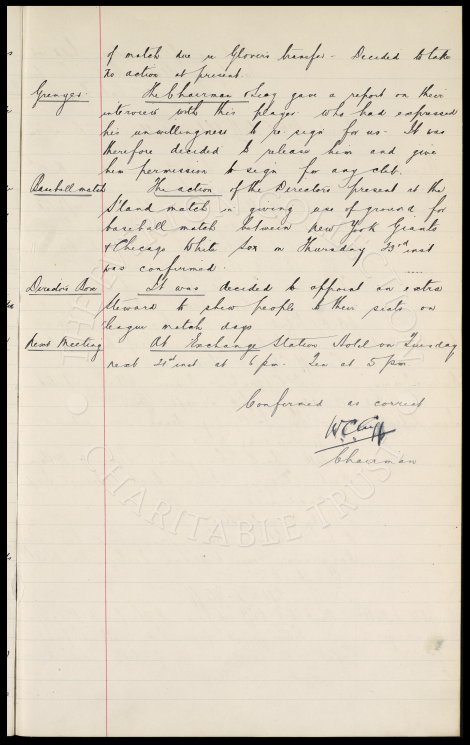 of match due re Glover's transfer - Decided to take
no action at present.
Grenyer. The Chairman & Secy gave a report on their
interview with this player who had expressed
his unwillingness to re-sign for us. It was
therefore decided to release him and give
him permission to sign for any club.
Baseball match The action of the Directors present at the
S'land match in giving use of ground for
baseball match between New York Giants
& Chicago White Sox on Thursday 23rd inst
was confirmed.
Director's Box It was decided to appoint an extra
steward to show people to their seats on
league match days
Next Meeting At Exchange Station Hotel on Tuesday
next 21st inst at 6 pm. Tea at 5 pm
Confirmed as correct
W.C. Cuff
Chairman
CHARITABLE TRUST